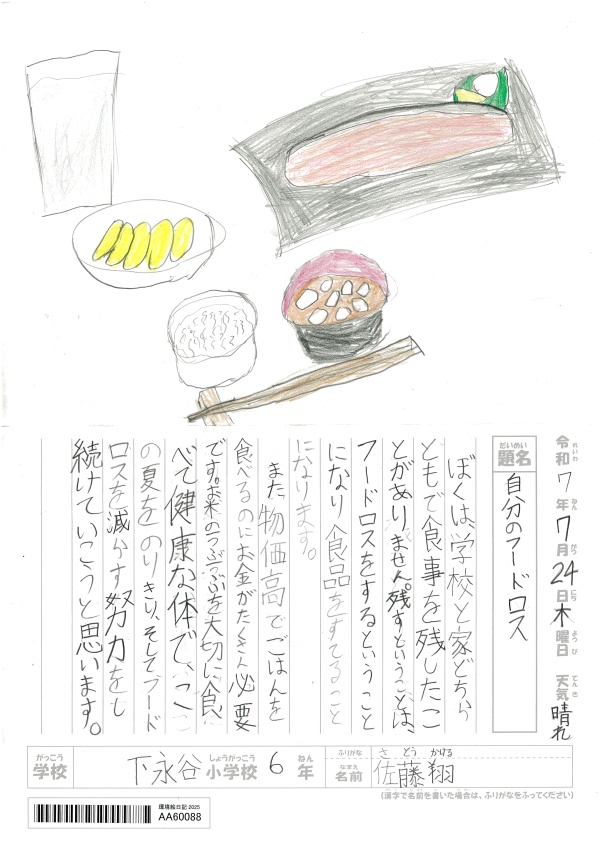 令和7年7月24日木曜日 天気晴れ
れいわ ねん がつ にち よう び てん き
だいめい
題名 自分のフードロス
ぼくは、学校と家どちら
ともで食事を残したこ
とがありません。残すということは、
フードロスをするということ
になり食品をすてること
になります。
また物価高でごはんを
食べるのにお金がたくさん必要
です。お米のつぶつぶを大切に食
べて健康な体で、
の夏をのりきり、そしてフード
ロスを減らす努力をし
続けていこうと思います。
がっこう しょうがっこう ねん ふりがな さ とう かける
学校 下永谷小学校 6年 なまえ 名前 佐藤翔
(漢字で名前を書いた場合は、ふりがなをふってください)
環境絵日記 2025
AA60088